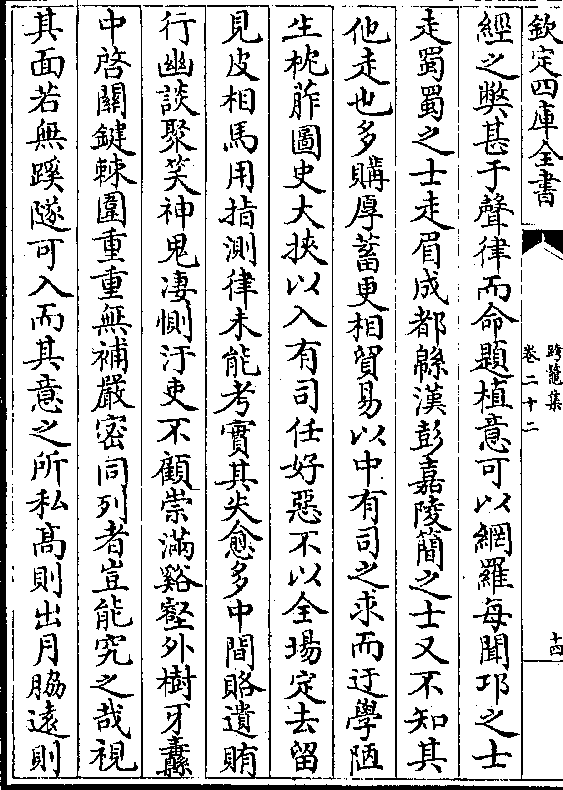 欽定四庫全書
跨鼇集
卷二十二
十四
經之弊甚于聲律而命題植意可以網羅每聞邛之士
走蜀蜀之士走眉成都緜漢彭嘉陵簡之士又不知其
他走也多購厚蓄更相貿易以中有司之求而迂學陋
生枕胙圖史大挾以入有司任好惡不以全場定去留
見皮相馬用指測律未能考實其失愈多中間賂遺賄
行幽談聚笑神鬼凄惻汙吏不顧崇滿谿壑外樹牙纛
中啓關鍵棘圍重重無補嚴密同列者豈能究之哉視
其面若無蹊隧可入而其意之所私髙則出月脇遠則